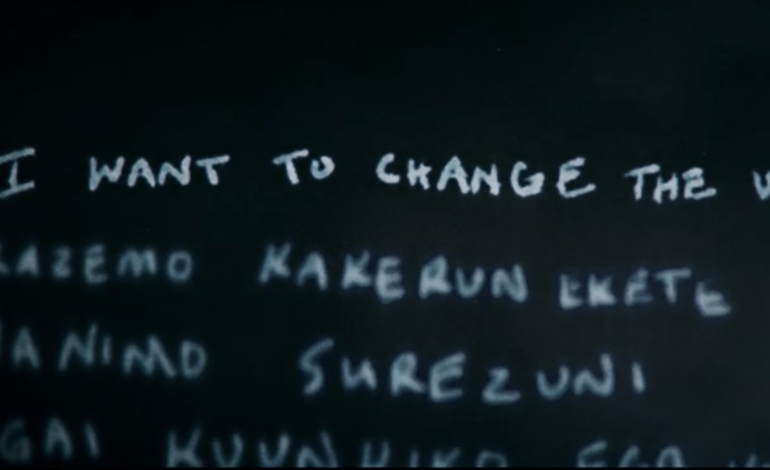 I WANT TO CHANGE THE W
KAZEMO KAKERUN EKETE
ANIMO SUREZUNI
GAI